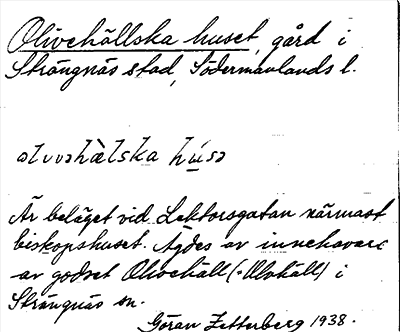 Olivehällska huset, gård i
Strängnäs stad, Södermanlands l.
olvvəhàlska húsə
Är beläget vid Lektorsgatan närmast
biskopshuset. Ägdes av innehavare
av godset Olivehäll (: Ulvhäll) i
Strängnäs sn.
Göran Zetterberg 1938.